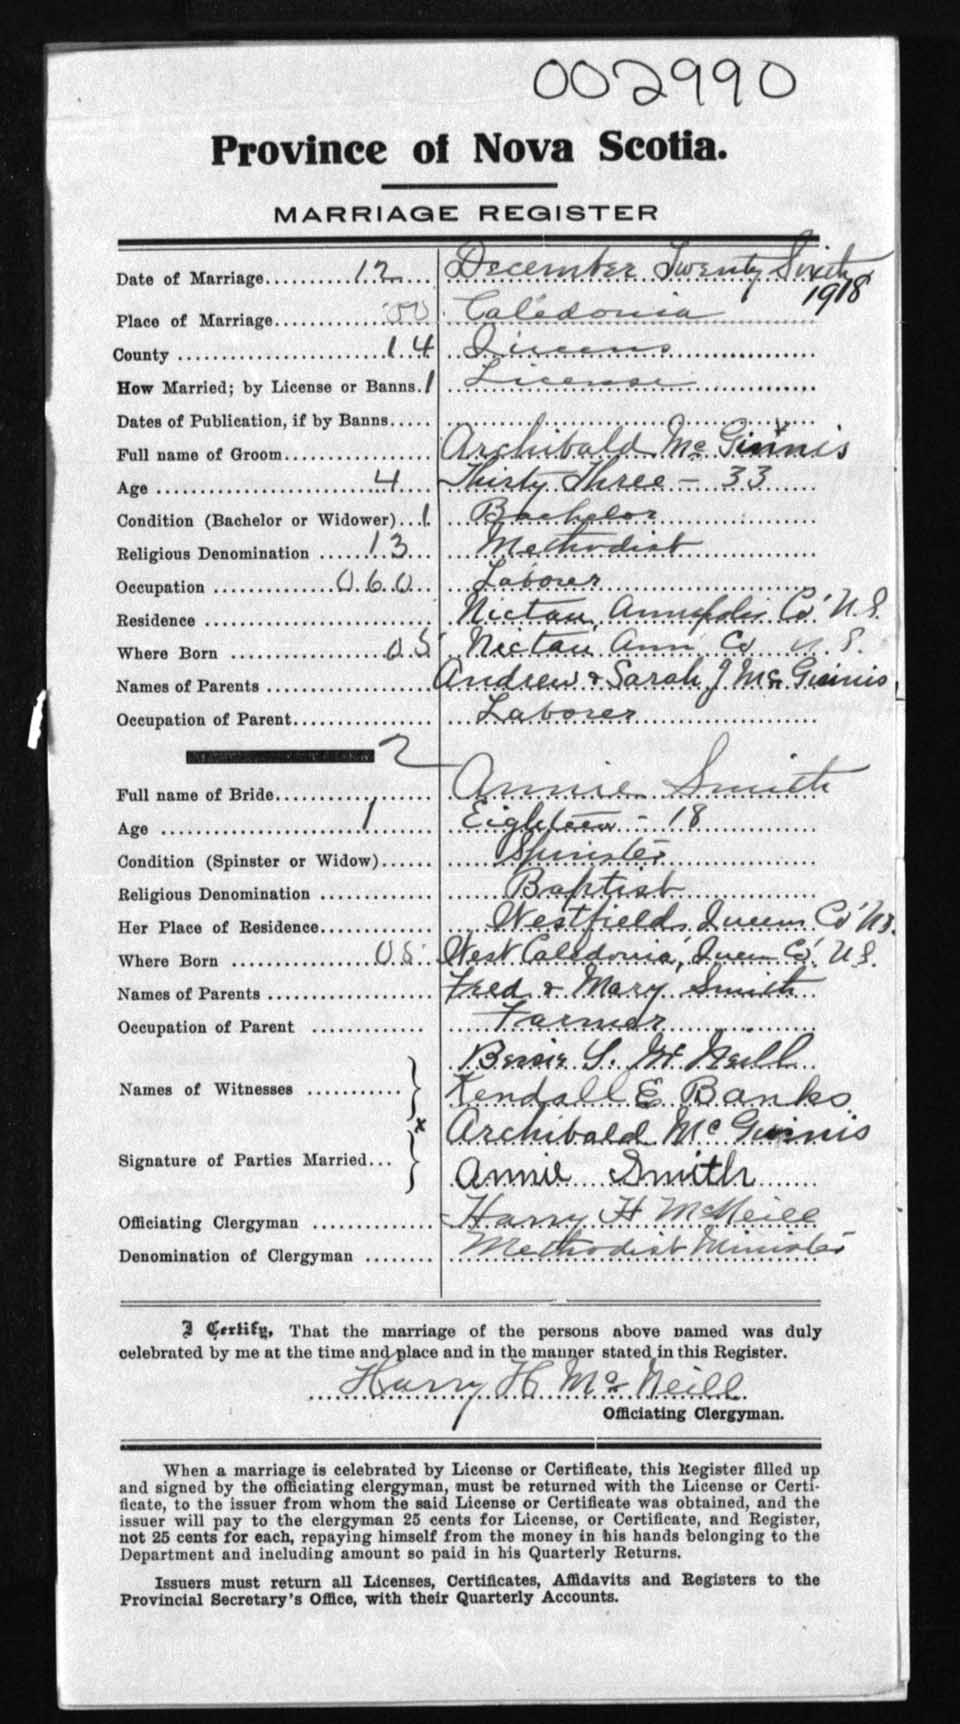 002990
Province of Nova Scotia.
MARRIAGE REGISTER
Date of Marriage..........12..... December Twenty Sixth
1918
Place of Marriage................ 00 Caledonia
County ........................14 Queens
How Married; by License or Banns.1 License
Dates of Publication, if by Banns.....
Full name of Groom................. Archibald Mc Ginnis
Age ........................4.... Thirty Three - 33
Condition (Bachelor or Widower)...1. Bachelor
Religious Denomination ......13... Methodist
Occupation .............060.. Laborer
Residence .......................... Nictau, Annapolis Co N.S.
Where Born ..................05 Nictau Ann Co N.S.
Names of Parents .................. Andrew & Sarah J McGinnis
Occupation of Parent................. Laborer
2
Full name of Bride................... Annie Smith
Age ........................1 Eighteen - 18
Condition (Spinster or Widow)...... Spinster
Religious Denomination ............. Baptist
Her Place of Residence.............. Westfield, Queens Co N.S.
Where Born ..................05. West Caledonia, Queen Co. N.S.
Names of Parents .................. Fred & Mary Smith
Occupation of Parent ............. Farmer
Bessie S. McNeill
Names of Witnesses ........... } Kendall E Banks
x Archibald McGinnis
Signature of Parties Married... } Annie Smith
Officiating Clergyman .............. Harry H McNeill
Denomination of Clergyman ........ Methodist Minister
I Certify, That the marriage of the persons above named was duly
celebrated by me at the time and place and in the manner stated in this Register.
Harry H McNeill
Officiating Clergyman.
When a marriage is celebrated by License or Certificate, this Register filled up
and signed by the officiating clergyman, must be returned with the License or Certi-
ficate, to the issuer from whom the said License or Certificate was obtained, and the
issuer will pay to the clergyman 25 cents for License, or Certificate, and Register,
not 25 cents for each, repaying himself from the money in his hands belonging to the
Department and including amount so paid in his Quarterly Returns.
Issuers must return all Licenses, Certificates, Affidavits and Registers to the
Provincial Secretary's Office, with their Quarterly Accounts.